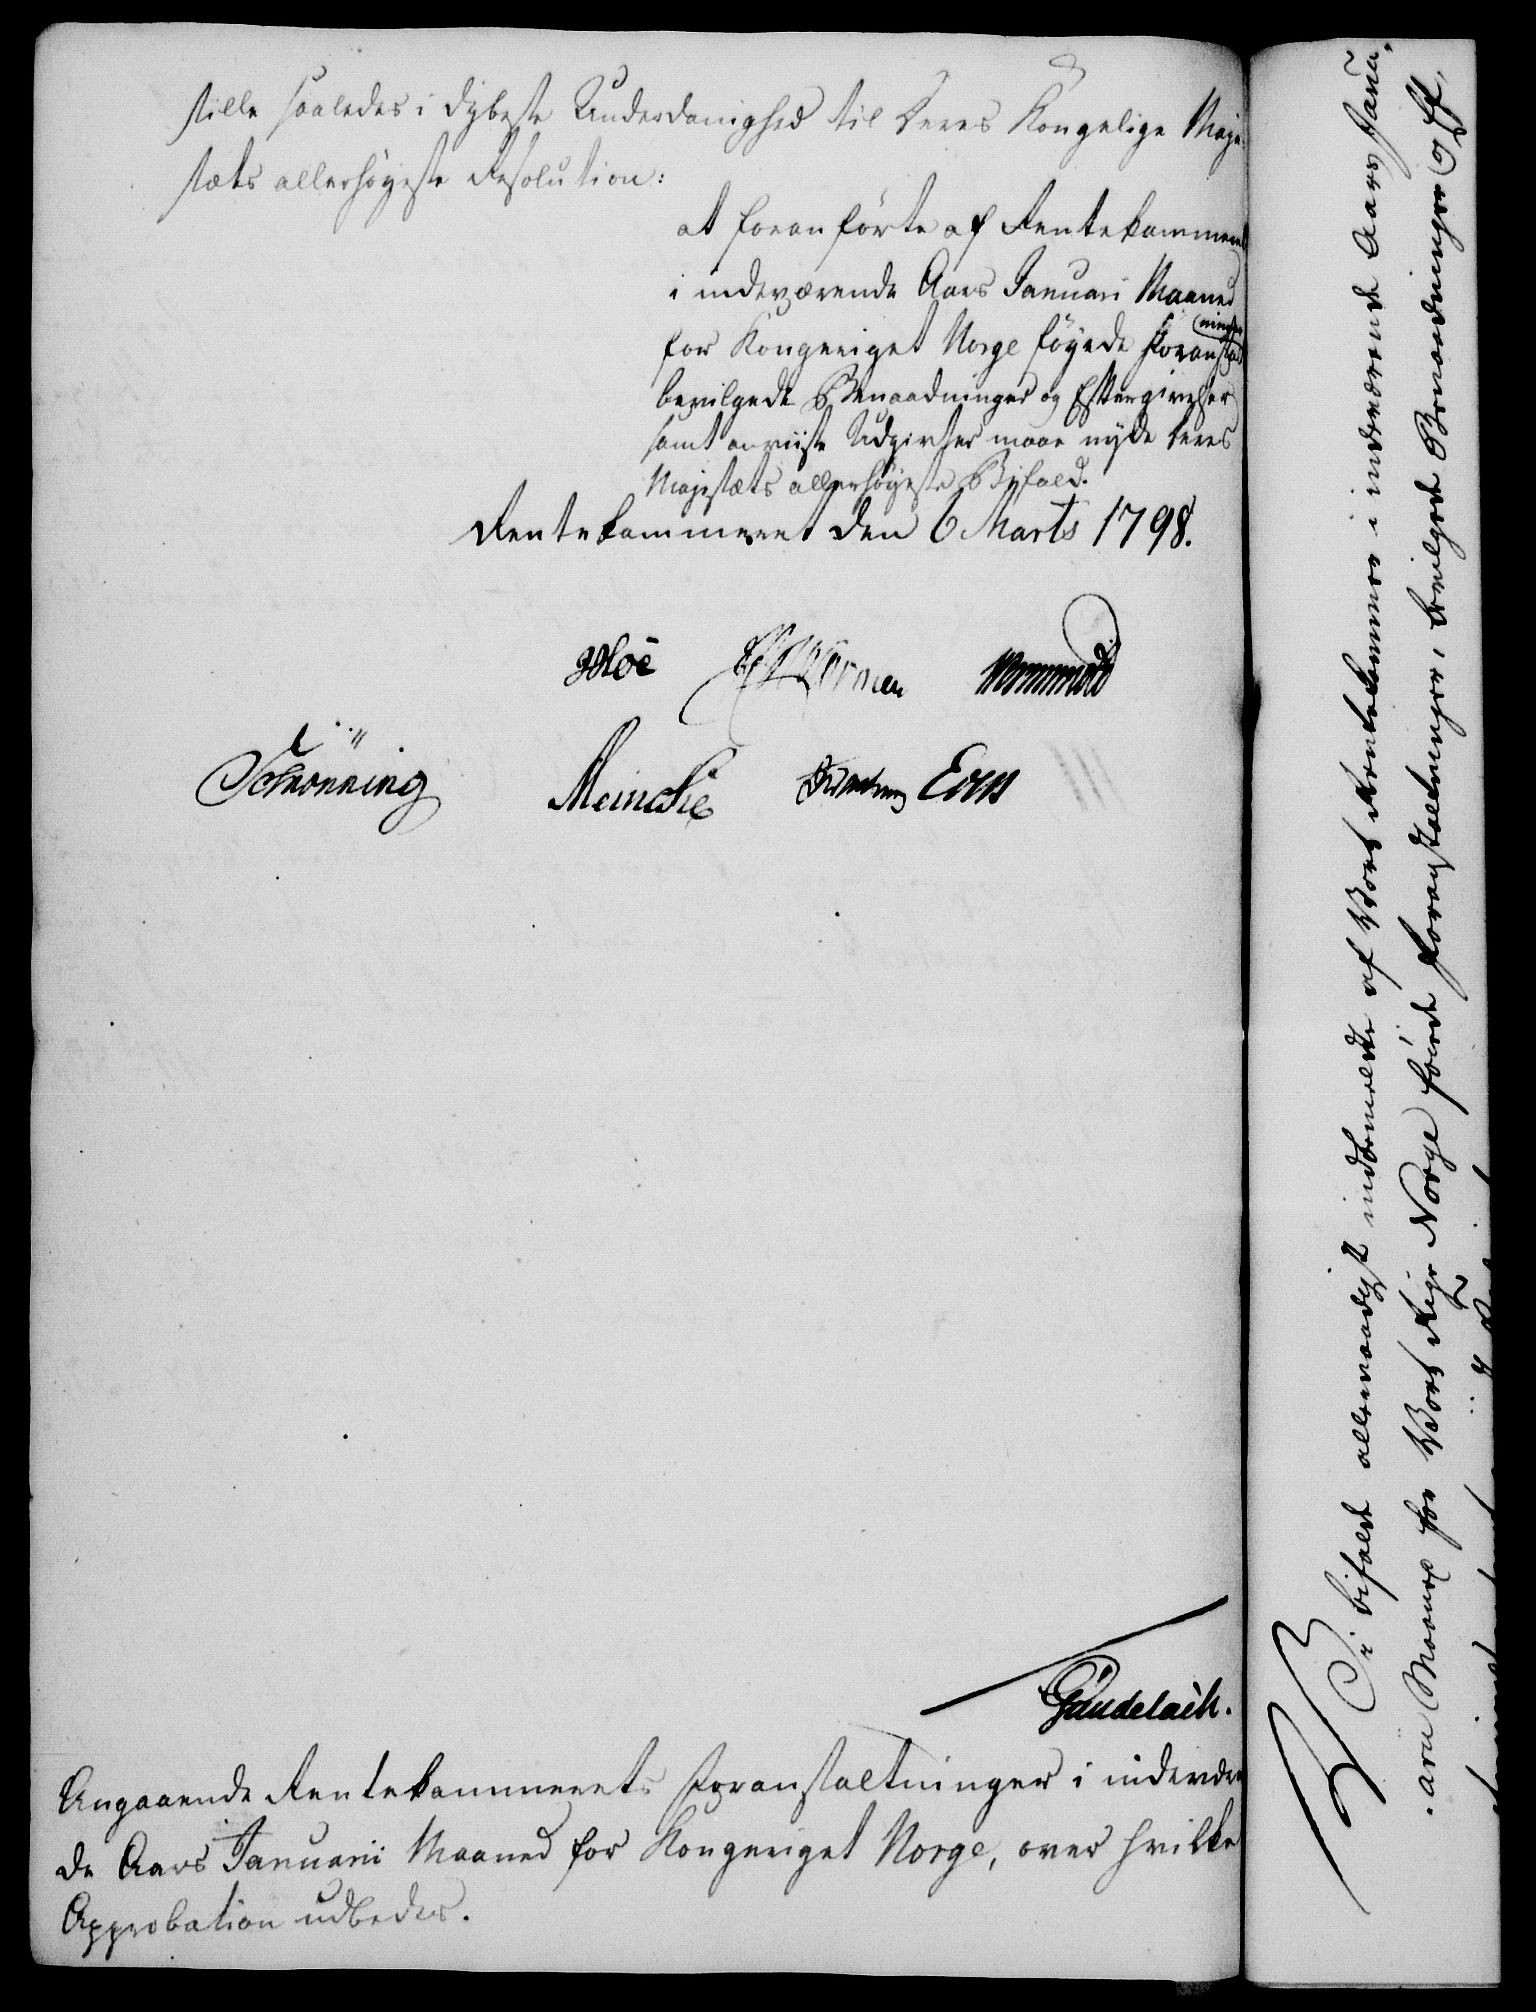 stille saaledes i dybeste Underdanighed til Deres Kongelige Maje-
stæts allerhöyeste Resolution:
at foranförte af Rentekammeret
i indeværende Aars Januari Maaned
for Kongeriget Norge föyede Foranstalt
ninger
bevilgede Benaadninger og Eftergivelser
samt anviiste Udgivter maae nyde Deres
Majestæts allerhöyeste Bifald.
Rentekammeret den 6 Marts 1798.
Hoë Wormskiold
Schönning Meincke Evers
Gündelach.
Angaaende Rentekammerets Foranstaltninger i indeværen
de Aars Januarii Maaned for Kongeriget Norge, over hvilke
Approbation udbedes.
Vi bifalde allernaadigst indbemeldte af Vort Rentekammer i indeværende Aars Janu-
arii Maaned for Vort Rige Norge föiede Foranstaltninger, bevilgede Benaadninger og Ef-